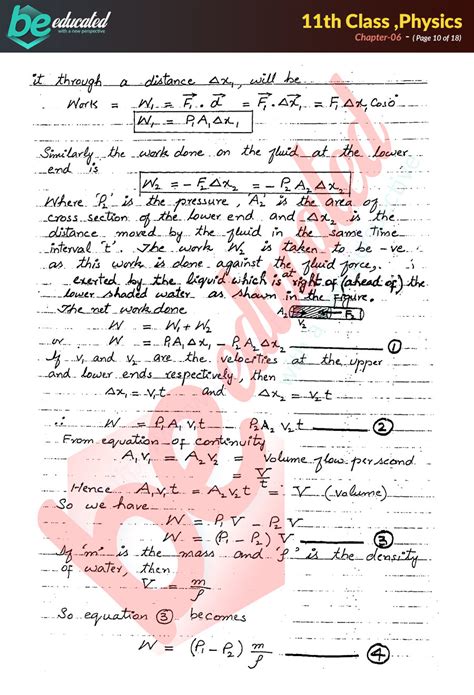 be educated
with a new perspective
11th Class ,Physics
Chapter-06 - ( Page 10 of 18)
it through a distance Δx₁, will be
Work = W₁ = F⃗₁ . d⃗ = F⃗₁.Δx⃗₁ = F₁ Δx₁ Cos0°
W₁ = P₁A₁Δx₁
Similarly the work done on the fluid at the lower
end is
W₂ = - F₂Δx₂ = - P₂ A₂ Δx₂
Where 'P₂' is the pressure, 'A₂' is the area of
cross section of the lower end and Δx₂ is the
distance moved by the fluid in the same time
interval 't'. The work W₂ is taken to be -ve
as this work is done against the fluid force,
exerted by the liquid which is at right of (ahead of) the
lower shaded water as shown in the Figure.
The net work done A₂ F₂
W = W₁ + W₂
or W = P₁A₁Δx₁ - P₂A₂Δx₂ ①
If v₁ and v₂ are the velocities at the upper
and lower ends respectively, then
Δx₁ = v₁t and Δx₂ = v₂t
∴ W = P₁A₁v₁t - P₂A₂v₂t ②
From equation of continuity
A₁v₁ = A₂v₂ = Volume flow per second
V/t
Hence A₁v₁t = A₂v₂t = V (volume)
So we have
W = P₁V - P₂V
W = (P₁ - P₂) V ③
If 'm' is the mass and 'ρ' is the density
of water, then
V = m/ρ
So equation ③ becomes
W = (P₁ - P₂) m/ρ ④